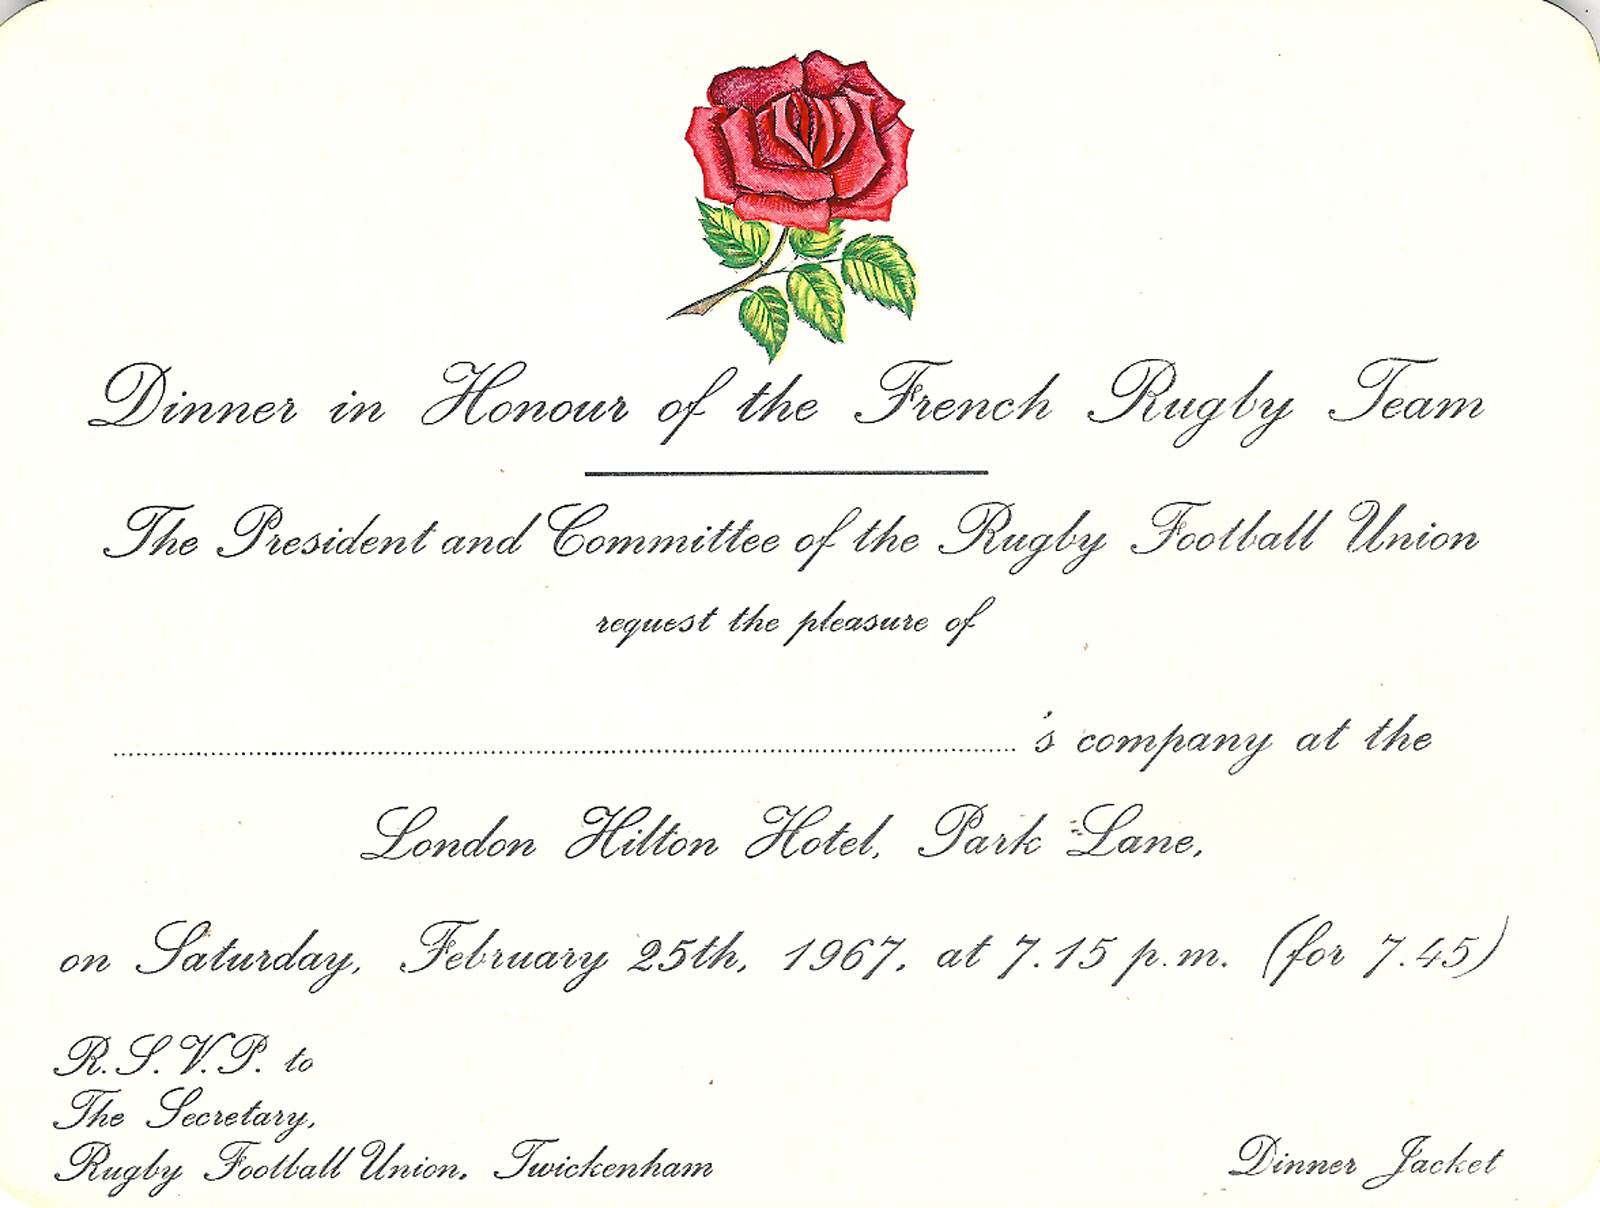 Dinner in Honour of the French Rugby Team
The President and Committee of the Rugby Football Union
request the pleasure of
's company at the
London Hilton Hotel, Park Lane,
on Saturday, February 25th, 1967, at 7.15 p.m. (for 7.45)
R.S.V.P. to
The Secretary,
Rugby Football Union, Twickenham
Dinner Jacket